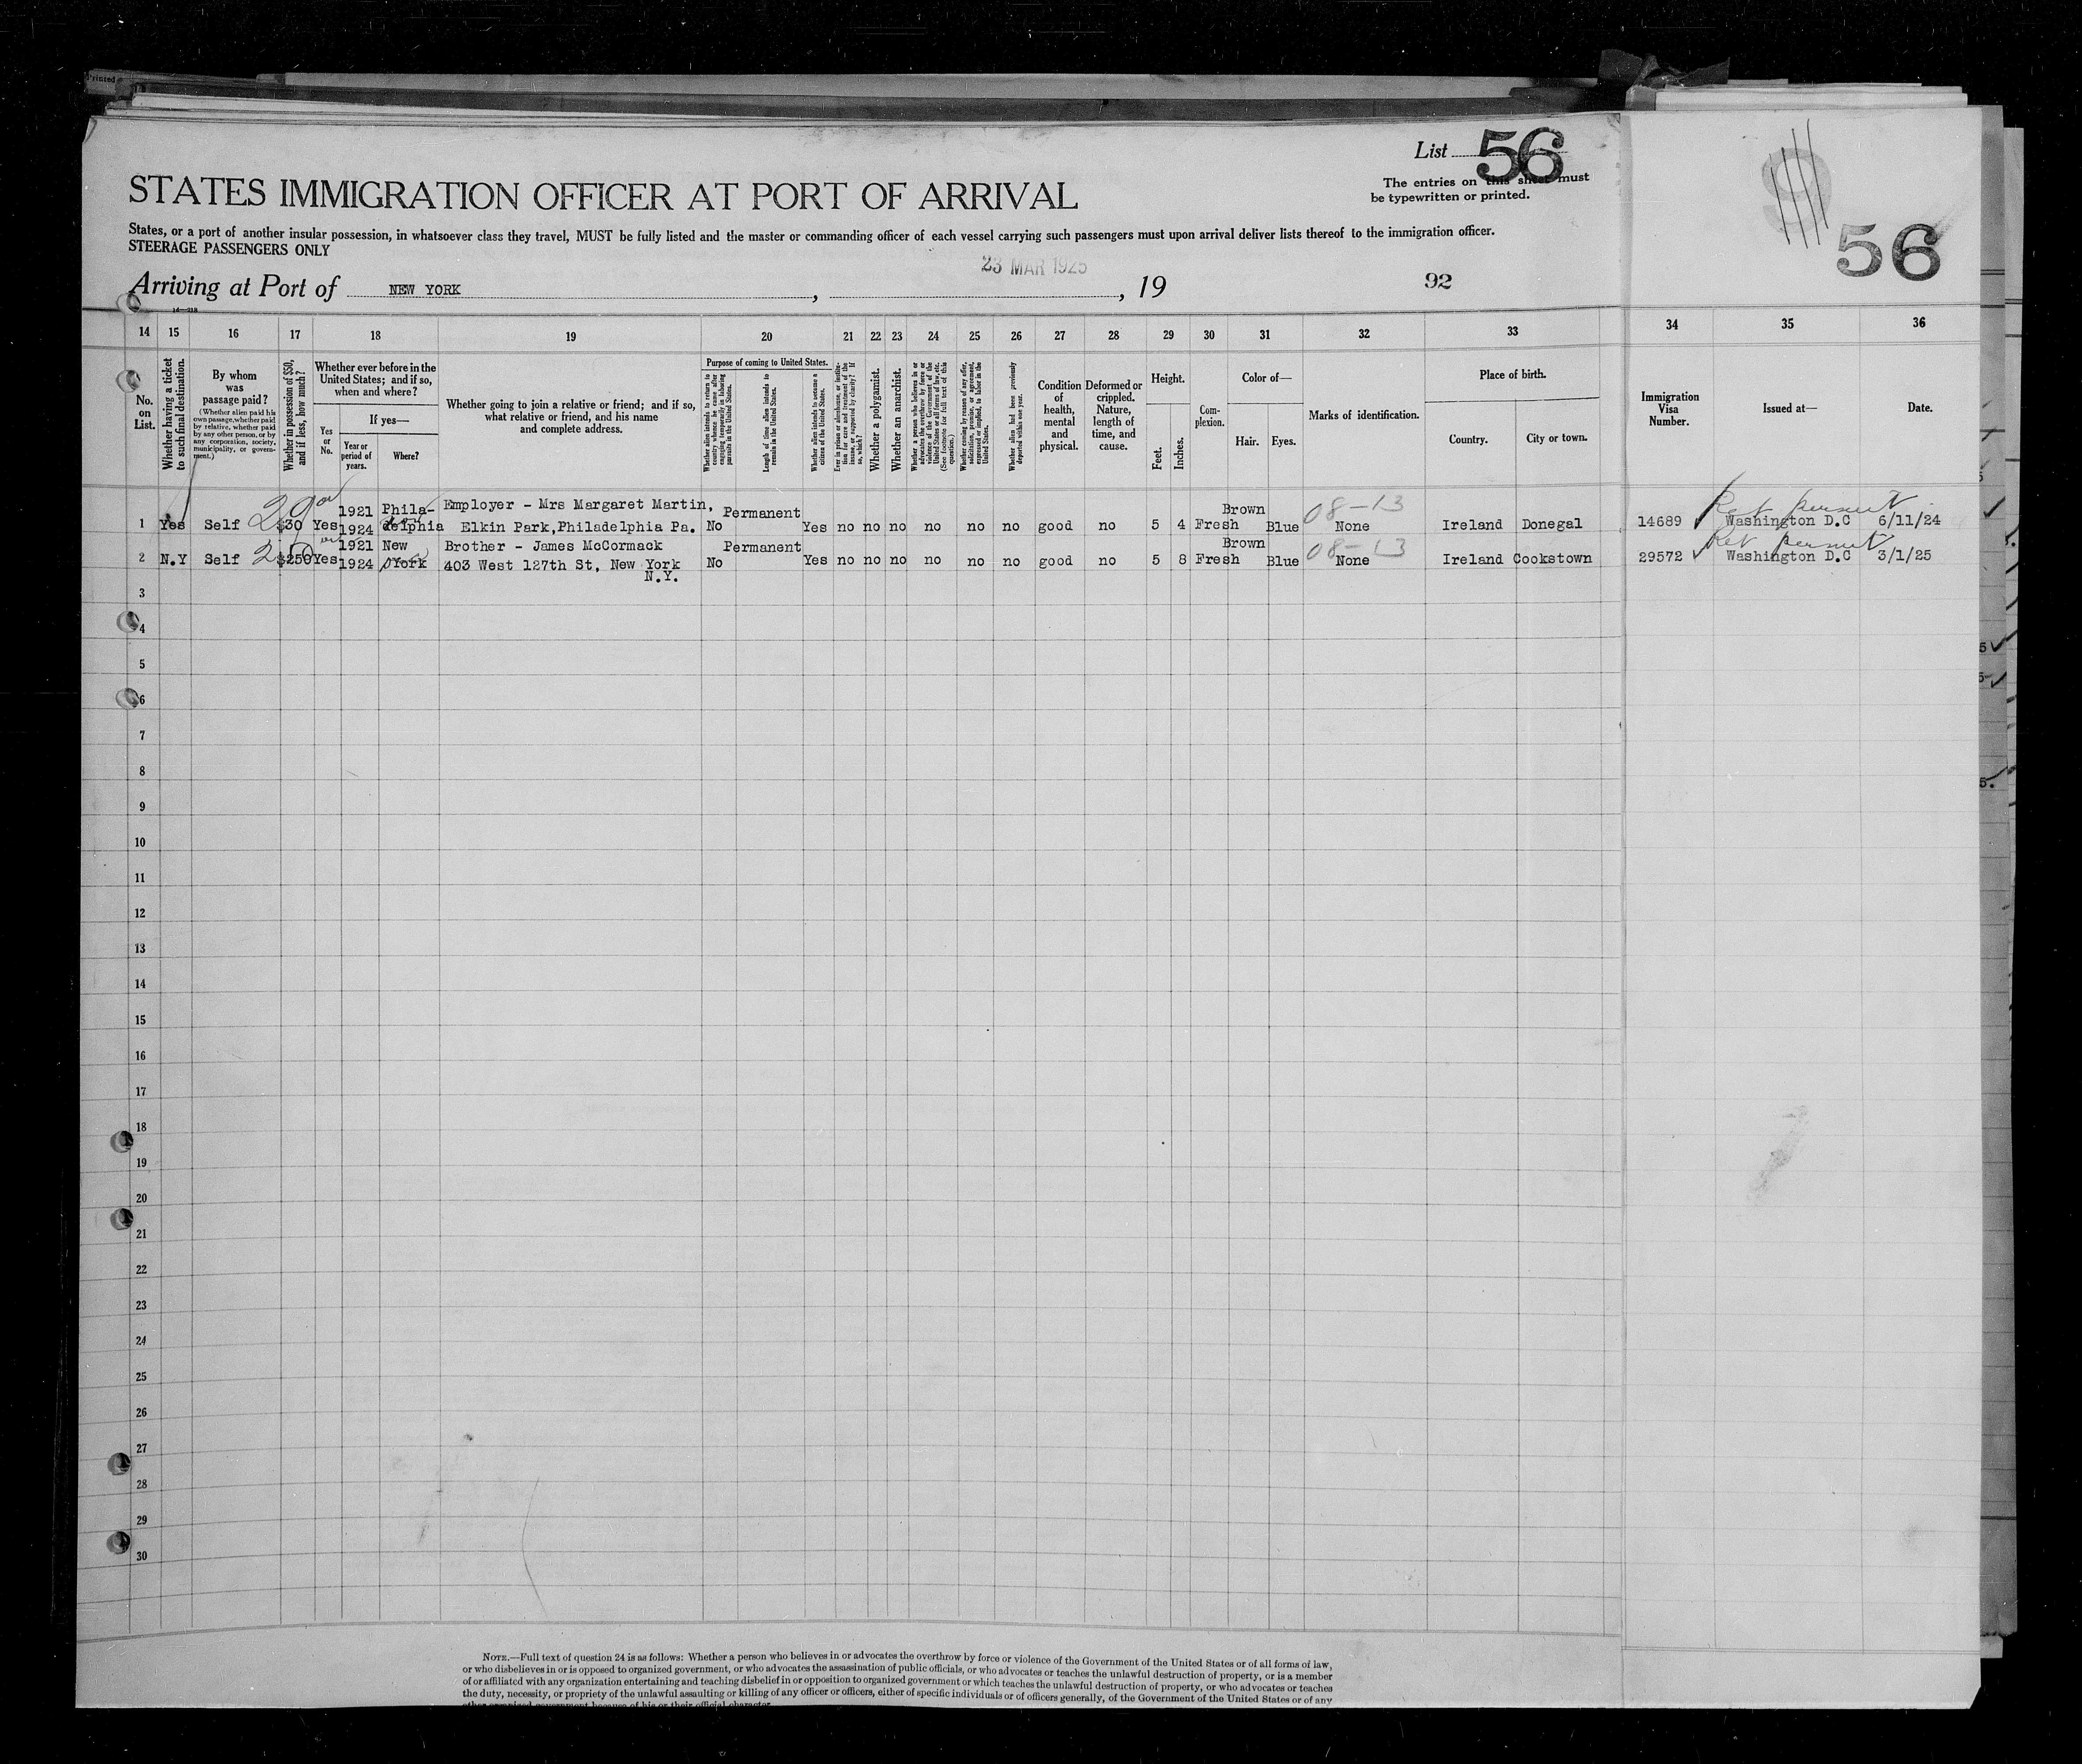 Printed
List 56
The entries on this sheet must
be typewritten or printed.
9
56
STATES IMMIGRATION OFFICER AT PORT OF ARRIVAL
States, or a port of another insular possession, in whatsoever class they travel, MUST be fully listed and the master or commanding officer of each vessel carrying such passengers must upon arrival deliver lists thereof to the immigration officer.
STEERAGE PASSENGERS ONLY
Arriving at Port of NEW YORK, 23 MAR 1925, 19
92
14 15 16 17 18 19 20 21 22 23 24 25 26 27 28 29 30 31 32 33 34 35 36
No. on List.
Whether having a ticket to such final destination.
By whom was passage paid?
(Whether alien paid his own passage, whether paid by relative, whether paid by any other person, or by any corporation, society, municipality, or government.)
Whether in possession of $50, and if less, how much?
Whether ever before in the United States; and if so, when and where?
Yes or No.
If yes—
Year or period of years.
Where?
Whether going to join a relative or friend; and if so, what relative or friend, and his name and complete address.
Purpose of coming to United States.
Whether alien intends to return to country whence he came after engaging temporarily in laboring pursuits in the United States.
Length of time alien intends to remain in the United States.
Whether alien intends to become a citizen of the United States.
Ever in prison or almshouse, or institution for care and treatment of the insane, or supported by charity? If so, which?
Whether a polygamist.
Whether an anarchist.
Whether a person who believes in or advocates the overthrow by force or violence of the Government of the United States or all forms of law, etc. (See footnote for full text of this question.)
Whether coming by reason of any offer, solicitation, promise, or agreement, expressed or implied, to labor in the United States.
Whether alien had been previously deported within one year.
Condition of health, mental and physical.
Deformed or crippled. Nature, length of time, and cause.
Height.
Feet.
Inches.
Complexion.
Color of—
Hair.
Eyes.
Marks of identification.
Place of birth.
Country.
City or town.
Immigration Visa Number.
Issued at—
Date.
1 Yes Self $30 Yes 1921 1924 Phila-delphia Employer - Mrs Margaret Martin, Elkin Park,Philadelphia Pa. No Permanent Yes no no no no no no good no 5 4 Fresh Brown Blue 08-13 None Ireland Donegal 14689 Ret permit Washington D.C 6/11/24
2 N.Y Self $250 Yes 1921 1924 New York Brother - James McCormack 403 West 127th St, New York N.Y. No Permanent Yes no no no no no no good no 5 8 Fresh Brown Blue 08-13 None Ireland Cookstown 29572 Ret permit Washington D.C 3/1/25
3
4
5
6
7
8
9
10
11
12
13
14
15
16
17
18
19
20
21
22
23
24
25
26
27
28
29
30
NOTE.—Full text of question 24 is as follows: Whether a person who believes in or advocates the overthrow by force or violence of the Government of the United States or of all forms of law,
or who disbelieves in or is opposed to organized government, or who advocates the assassination of public officials, or who advocates or teaches the unlawful destruction of property, or is a member
of or affiliated with any organization entertaining and teaching disbelief in or opposition to organized government or which teaches the unlawful destruction of property, or who advocates or teaches
the duty, necessity, or propriety of the unlawful assaulting or killing of any officer or officers, either of specific individuals or of officers generally, of the Government of the United States or of any
other organized government because of his or their official character.